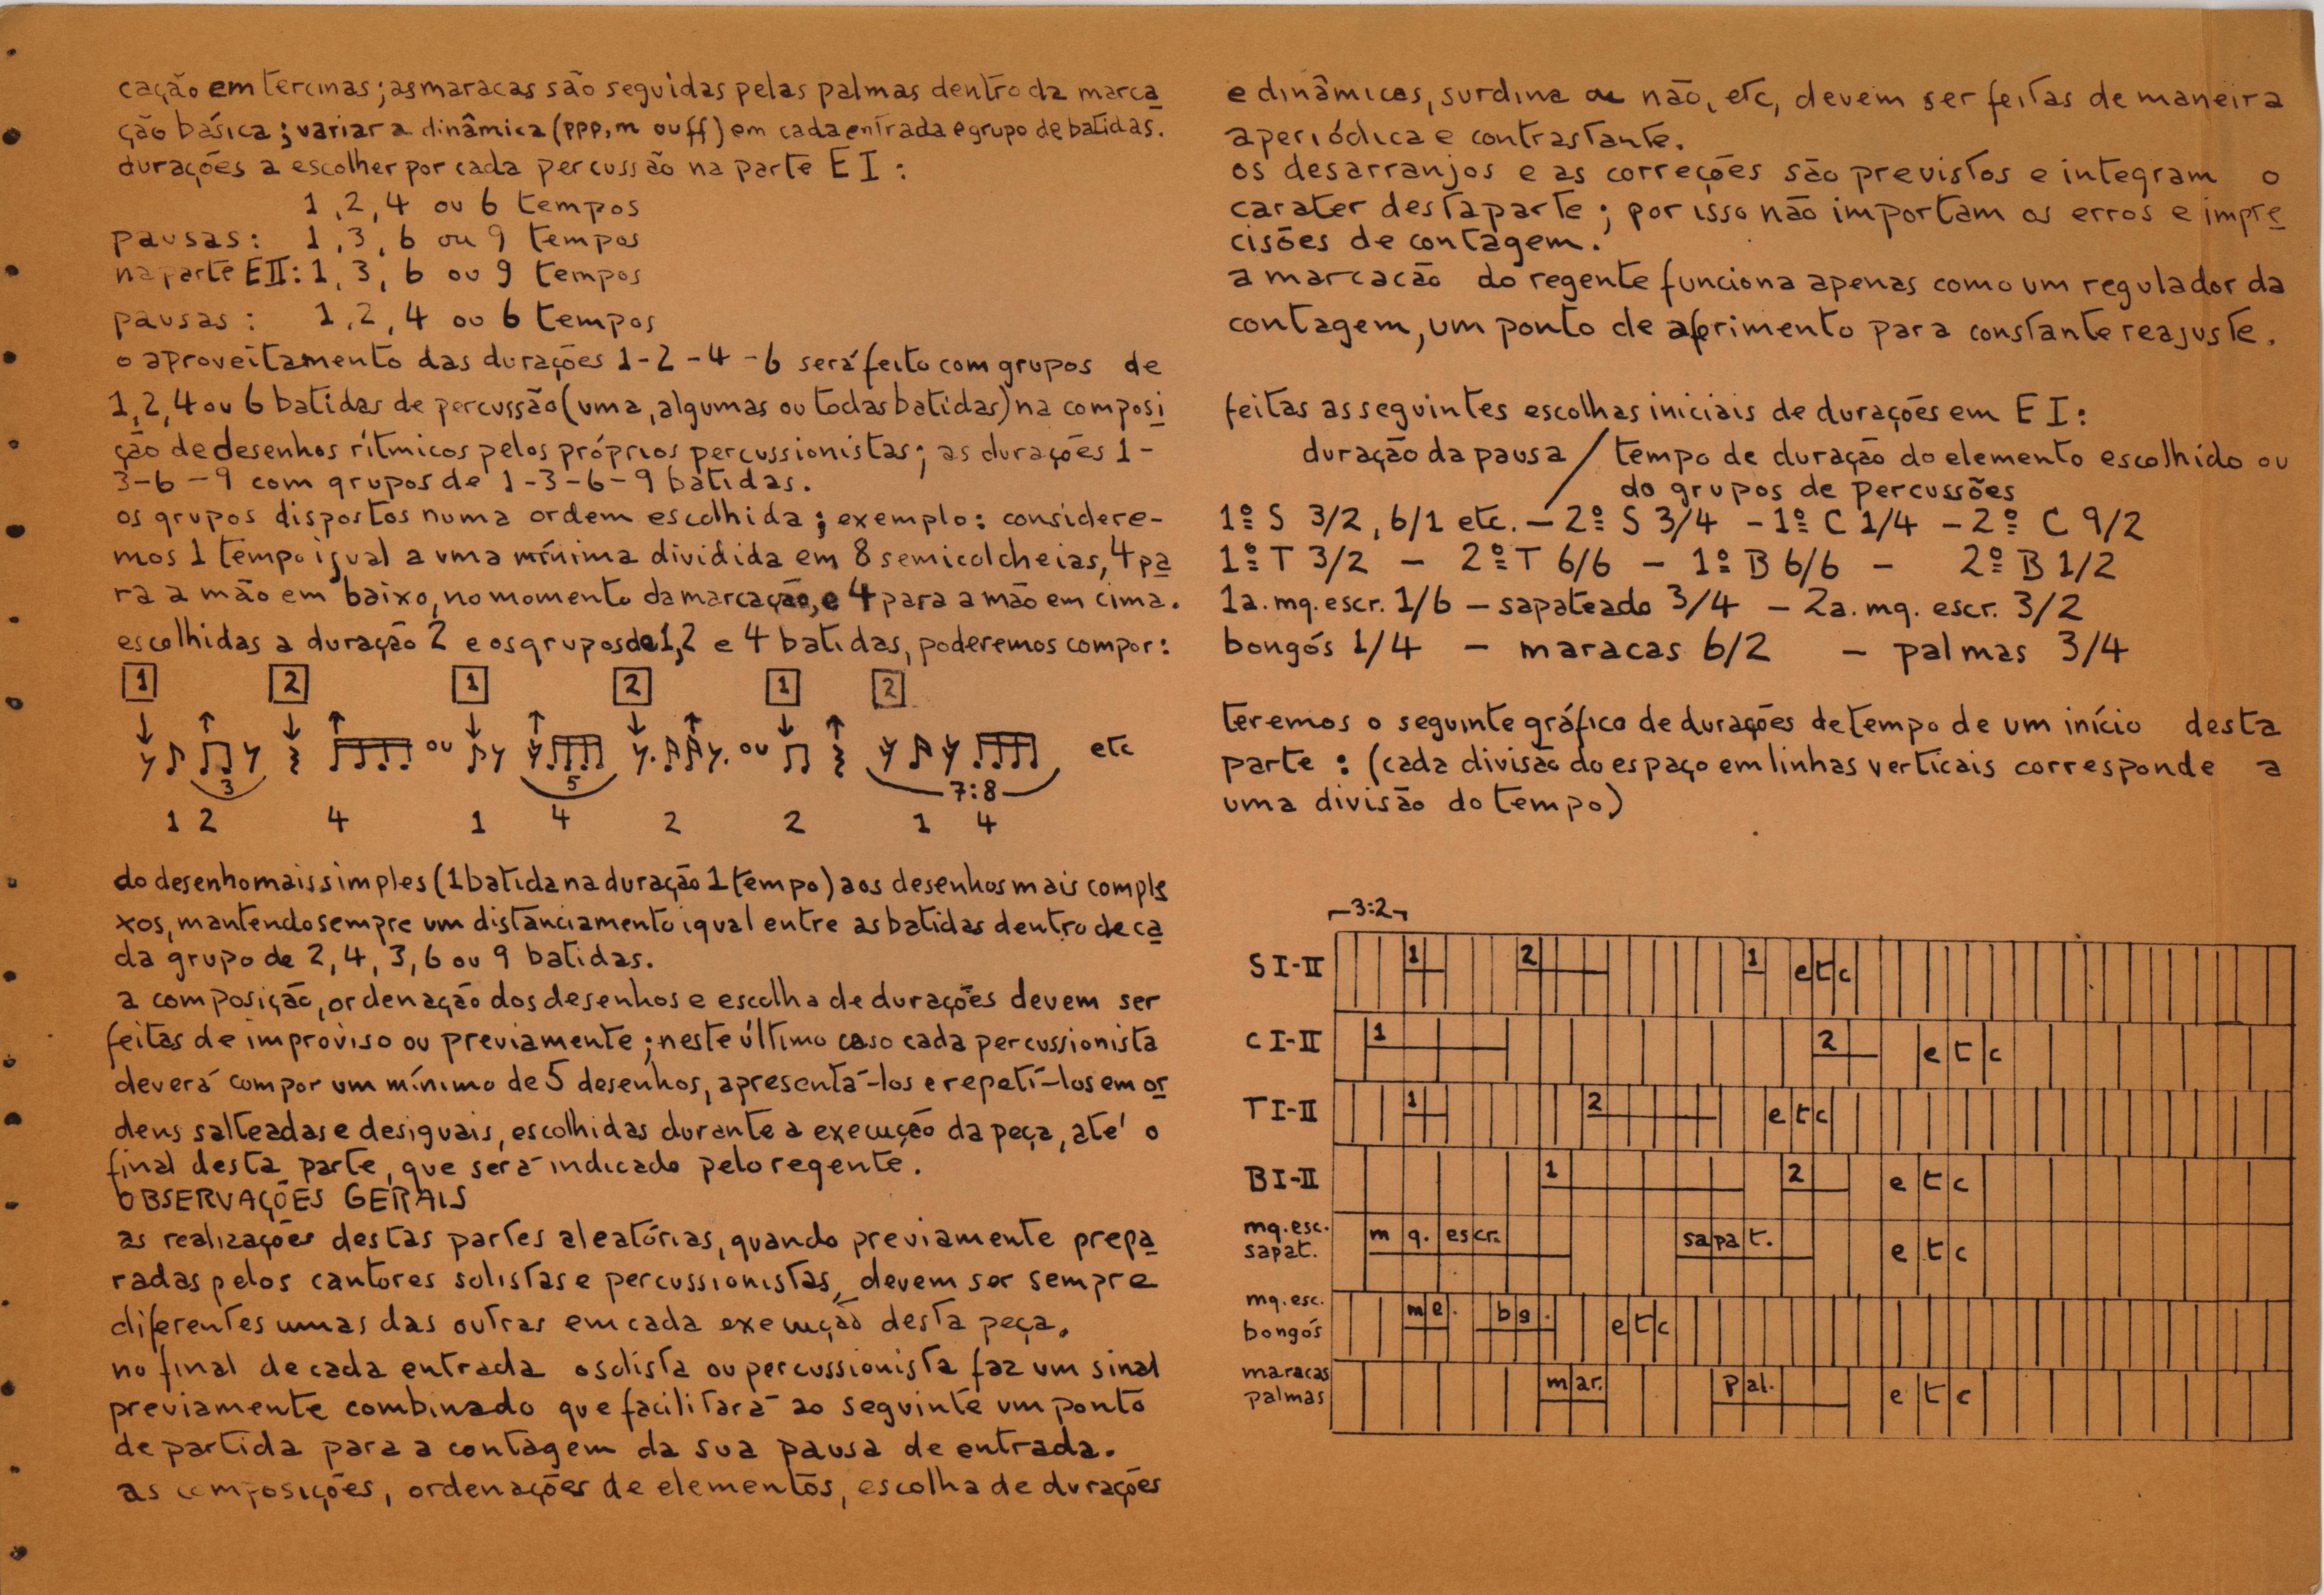 cação em tercinas; as maracas são seguidas pelas palmas dentro da marca
ção básica; variar a dinâmica (ppp, m ou ff) em cada entrada e grupo de batidas.
durações a escolher por cada percussão na parte E I :
1, 2, 4 ou 6 tempos
pausas: 1, 3, 6 ou 9 tempos
na parte E II: 1, 3, 6 ou 9 tempos
pausas : 1, 2, 4 ou 6 tempos
o aproveitamento das durações 1 - 2 - 4 - 6 será feito com grupos de
1, 2, 4 ou 6 batidas de percussão (uma, algumas ou todas batidas) na composi
ção de desenhos rítmicos pelos próprios percussionistas; as durações 1 -
3 - 6 - 9 com grupos de 1 - 3 - 6 - 9 batidas.
os grupos dispostos numa ordem escolhida; exemplo: considere-
mos 1 tempo igual a uma mínima dividida em 8 semicolcheias, 4 pa
ra a mão em baixo, no momento da marcação, e 4 para a mão em cima.
escolhidas a duração 2 e os grupos de 1, 2 e 4 batidas, poderemos compor:
1 2 1 2 1 2
ou ou etc
3 5 7:8
1 2 4 1 4 2 2 1 4
do desenho mais simples (1 batida na duração 1 tempo) aos desenhos mais comple
xos, mantendo sempre um distanciamento igual entre as batidas dentro de ca
da grupo de 2, 4, 3, 6 ou 9 batidas.
a composição, ordenação dos desenhos e escolha de durações devem ser
feitas de improviso ou previamente; neste último caso cada percussionista
deverá compor um mínimo de 5 desenhos, apresentá-los e repetí-los em or
dens salteadas e desiguais, escolhidas durante a execução da peça, até o
final desta parte, que será indicado pelo regente.
OBSERVAÇÕES GERAIS
as realizações destas partes aleatórias, quando previamente prepa
radas pelos cantores solistas e percussionistas, devem ser sempre
diferentes umas das outras em cada execução desta peça.
no final de cada entrada o solista ou percussionista faz um sinal
previamente combinado que facilitará ao seguinte um ponto
de partida para a contagem da sua pausa de entrada.
as composições, ordenações de elementos, escolha de durações
e dinâmicas, surdina ou não, etc, devem ser feitas de maneira
aperiódica e contrastante.
os desarranjos e as correções são previstos e integram o
carater desta parte; por isso não importam os erros e impre
cisões de contagem.
a marcacão do regente funciona apenas como um regulador da
contagem, um ponto de aferimento para constante reajuste.
feitas as seguintes escolhas iniciais de durações em E I :
duração da pausa / tempo de duração do elemento escolhido ou
do grupos de percussões
1º S 3/2, 6/1 etc. – 2º S 3/4 – 1º C 1/4 – 2º C 9/2
1º T 3/2 – 2º T 6/6 – 1º B 6/6 – 2º B 1/2
1a. mq. escr. 1/6 – sapateado 3/4 – 2a. mq. escr. 3/2
bongós 1/4 – maracas 6/2 – palmas 3/4
teremos o seguinte gráfico de durações de tempo de um início desta
parte : (cada divisão do espaço em linhas verticais corresponde a
uma divisão do tempo)
3:2
S I-II 1 2 1 etc
C I-II 1 2 etc
T I-II 1 2 etc
B I-II 1 2 etc
mq. esc.
sapat. mq. escr. sapat. etc
mq. esc.
bongós me. bg. etc
maracas
palmas mar. pal. etc